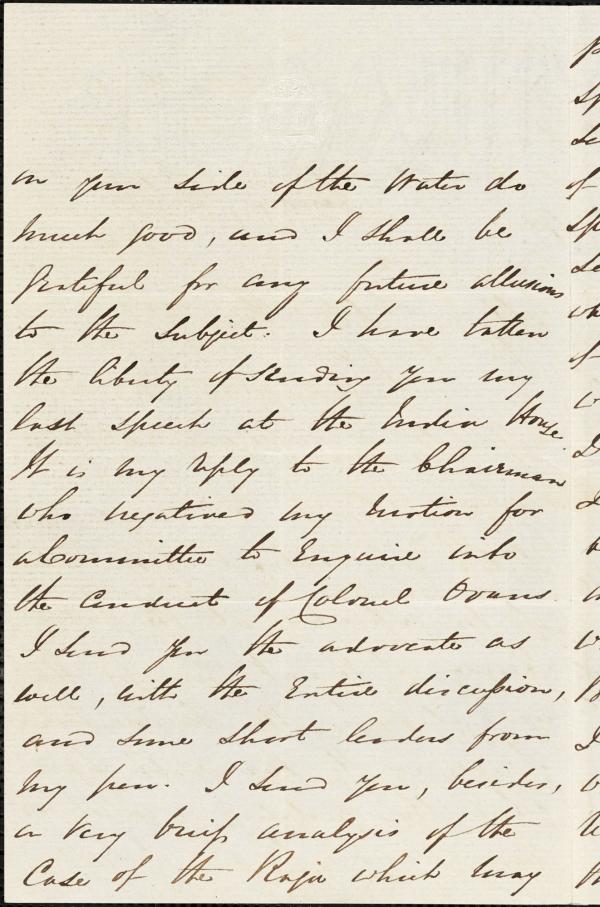 on your side of the Water do
much good, and I shall be
grateful for any future allusions
to the subject. I have taken
the liberty of sending you my
last speech at the India House.
It is my reply to the Chairman
who negatived my motion for
a Committee to Enquire into
the conduct of Colonel Ovans.
I send you the advocate as
well, with the Entire discussion,
and some short leaders from
my pen. I send you, besides,
a very brief analysis of the
Case of the Raja which may